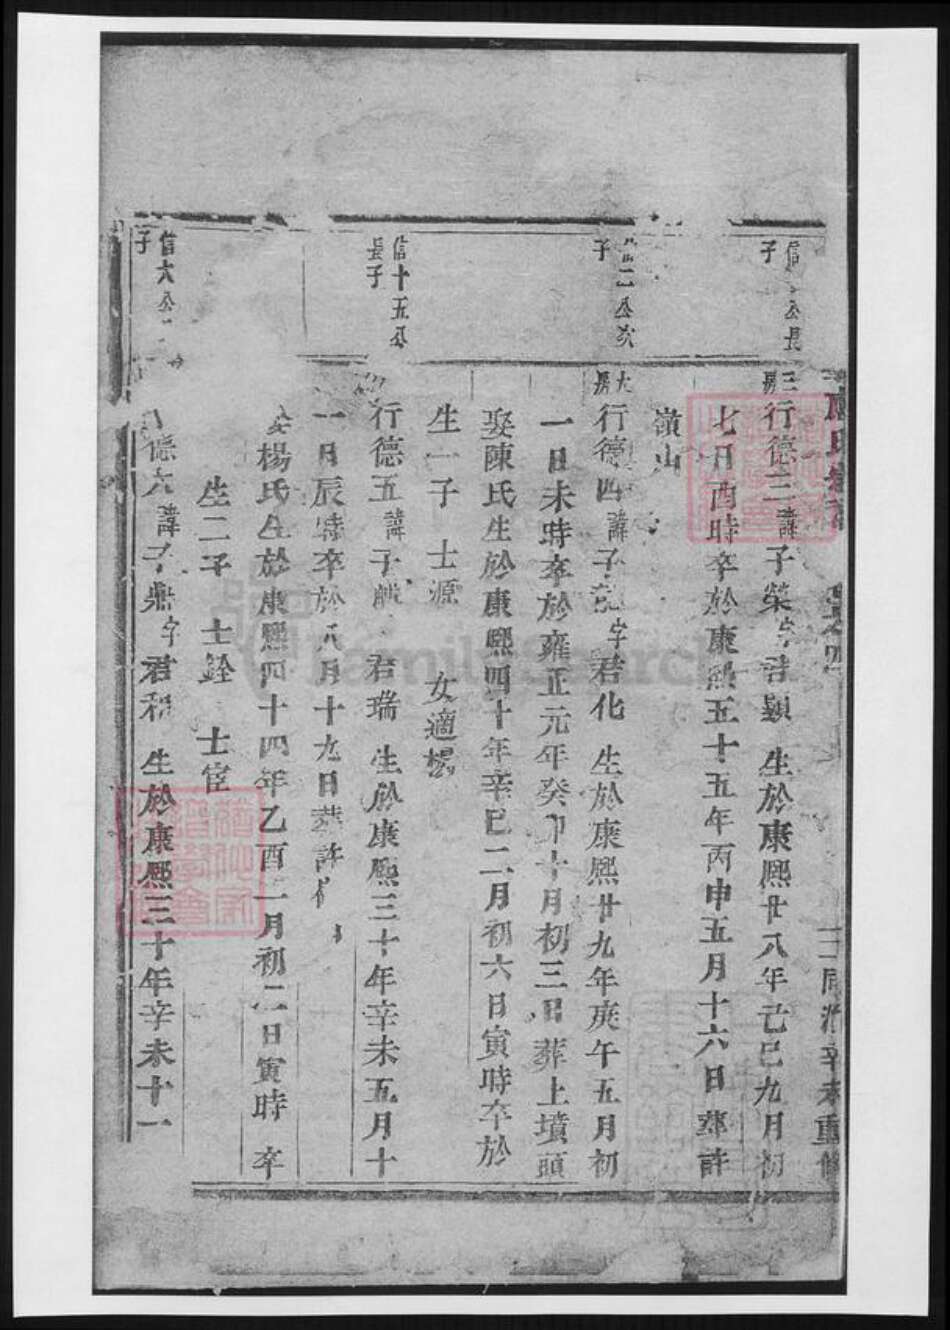 氏
同治辛未重修
信 公長
子
三房行德三諱子榮字君顯 生於康熙廿八年己巳九月初
七日酉時卒於康熙五十五年丙申五月十六日葬許
嶺山
二公次
子
大房行德四諱子 字君化 生於康熙廿九年庚午五月初
一日未時卒於雍正元年癸卯十月初三日葬上墳頭
娶陳氏生於康熙四十年辛巳二月初六日寅時卒於
生一子 士源 女適楊
信十五公
長子
行德五諱子 君瑞 生於康熙三十年辛未五月十
一日辰時卒於八月十九日葬許
娶楊氏生於康熙四十四年乙酉二月初二日寅時 卒
生二子 士銓 士宦
信六公
子
德六諱子鼎字君和 生於康熙三十年辛未十一
FamilySearch